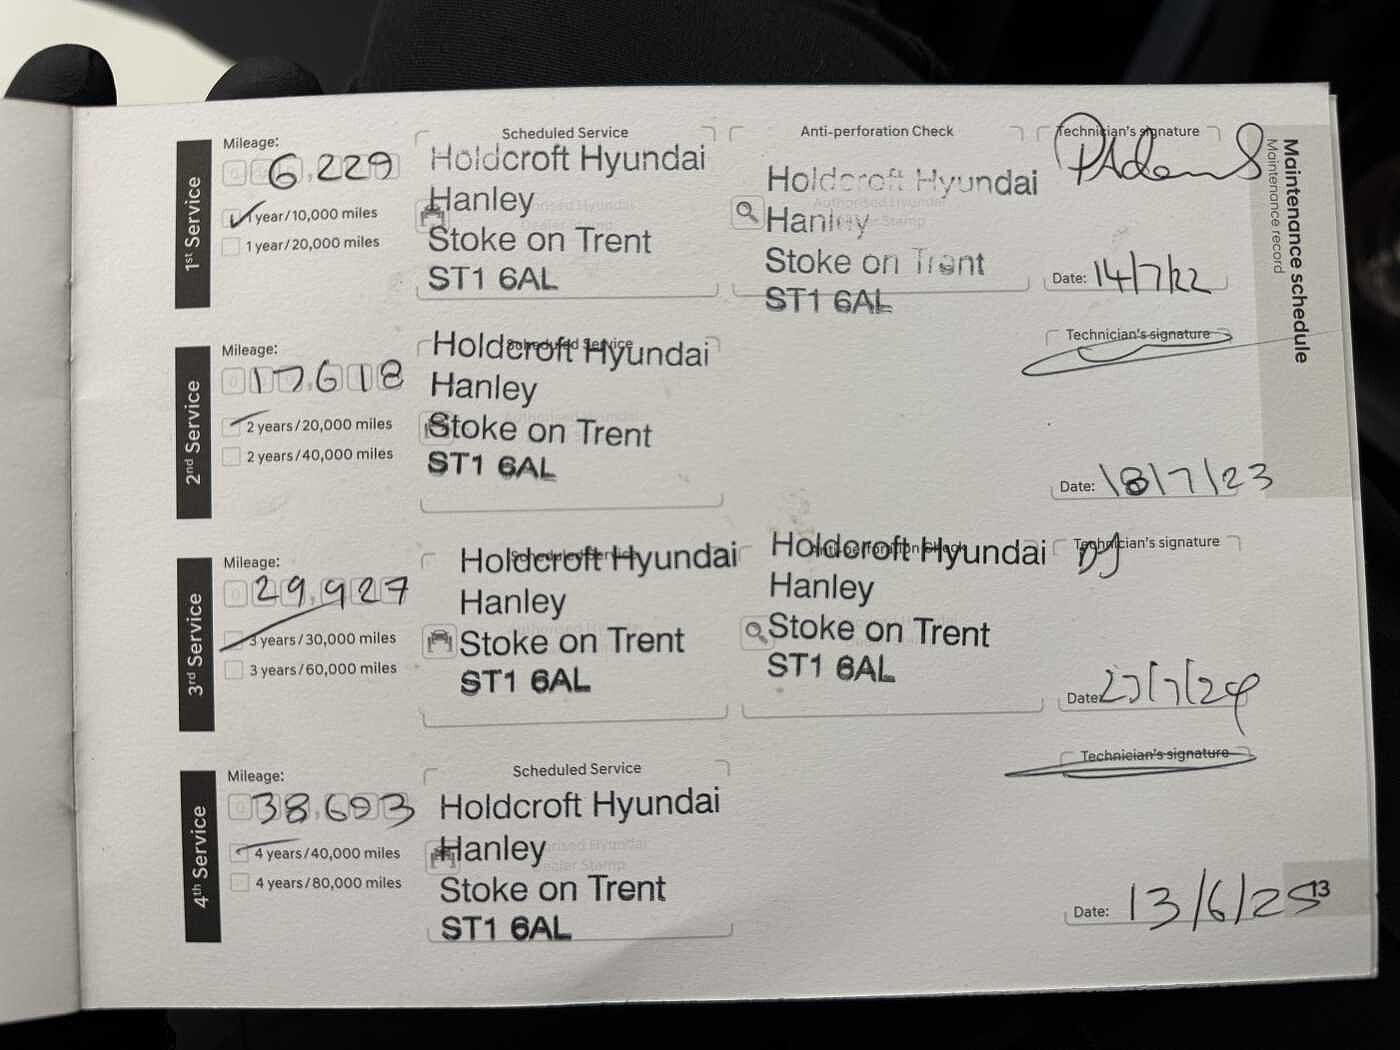 Maintenance schedule
Maintenance record
1st Service
Mileage:
6,229
1 year/10,000 miles
1 year/20,000 miles
Scheduled Service
Holdcroft Hyundai
Hanley
Stoke on Trent
ST1 6AL
Anti-perforation Check
Holdcroft Hyundai
Hanley
Stoke on Trent
ST1 6AL
Technician's signature
PAdams
Date: 14/7/22
2nd Service
Mileage:
17,618
2 years/20,000 miles
2 years/40,000 miles
Scheduled Service
Holdcroft Hyundai
Hanley
Stoke on Trent
ST1 6AL
Technician's signature
Date: 18/7/23
3rd Service
Mileage:
29,927
3 years/30,000 miles
3 years/60,000 miles
Scheduled Service
Holdcroft Hyundai
Hanley
Stoke on Trent
ST1 6AL
Anti-perforation Check
Holdcroft Hyundai
Hanley
Stoke on Trent
ST1 6AL
Technician's signature
DJ
Date:
4th Service
Mileage:
4 years/40,000 miles
4 years/80,000 miles
Scheduled Service
Holdcroft Hyundai
Hanley
Stoke on Trent
ST1 6AL
Technician's signature
Date: 13/6/25
13